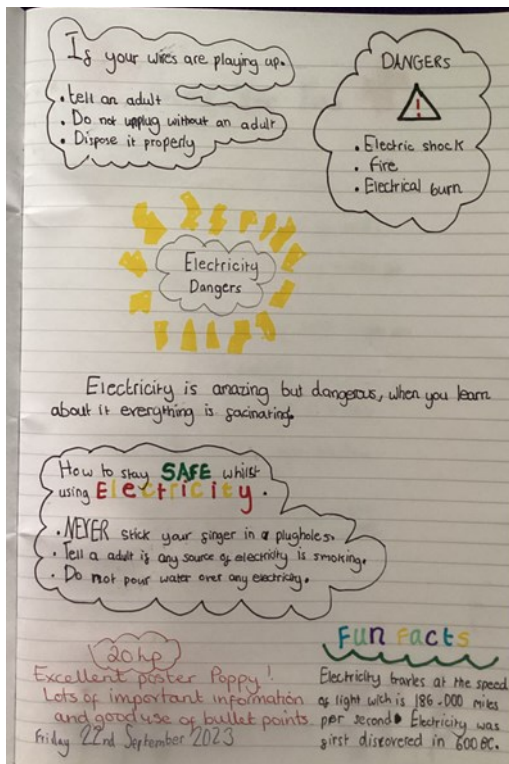 If your wires are playing up.
• tell an adult
• Do not unplug without an adult
• Dispose it properly
DANGERS
!
• Electric shock
• Fire
• Electrical burn
Electricity
Dangers
Electricity is amazing but dangerous, when you learn
about it everything is facinating.
How to stay SAFE whilst
using Electricity.
• NEVER stick your finger in a plugholes.
• Tell a adult if any source of electricity is smoking.
• Do not pour water over any electricity.
20hp
Excellent poster Poppy!
Lots of important information
and good use of bullet points
Friday 22nd September 2023
Fun Facts
Electricity travles at the speed
of light wich is 186.000 miles
per second. Electricity was
first discovered in 600BC.